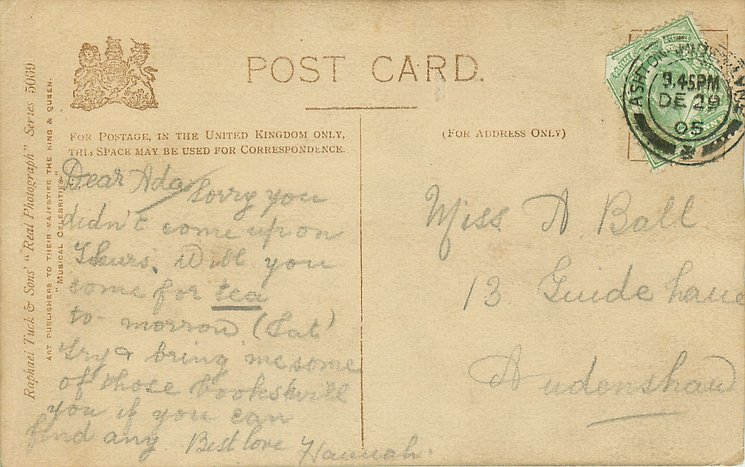 POST CARD.
Raphael Tuck & Sons' "Real Photograph" Series 5069
ART PUBLISHERS TO THEIR MAJESTIES THE KING & QUEEN.
"MUSICAL CELEBRITIES"
FOR POSTAGE, IN THE UNITED KINGDOM ONLY,
THIS SPACE MAY BE USED FOR CORRESPONDENCE.
(FOR ADDRESS ONLY)
ASHTON-UNDER-LYNE
9.45PM
DE 29
05
Dear Ada, Sorry you
didn't come up on
Thurs. Will you
come for tea
to-morrow (Sat)
try & bring me some
of those books will
you if you can
find any. Best love Hannah.
Miss A Ball
13 Guide Lane
Audenshaw